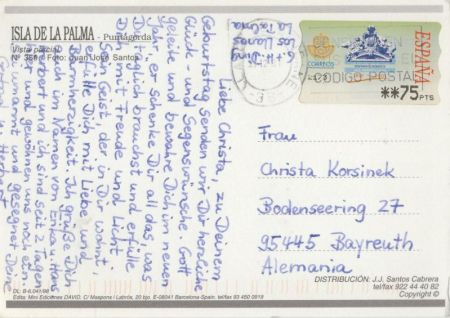 ISLA DE LA PALMA - Puntagorda
Vista parcial
Nº 356 - Foto: Juan José Santos
Liebe Christa, zu Deinem
Geburtstag senden wir Dir herzliche
Glück- und Segenswünsche. Gott
geleite und bewahre Dich im neuen
Jahr, er schenke Dir all das, was
Du täglich brauchst und erfülle
Dich mit Freude und Licht.
Sein Geist, der in Dir wohnt,
erfülle Dich mit Liebe und
Barmherzigkeit. Ich grüße Dich
auch im Namen von Erika. Hans
Herbert und ich sind seit 2 Tagen
hier und gewöhnen uns noch ein.
Sei umarmt und gesegnet Deine
Herbert
Los Llanos
La Palma
ESPAÑA
CORREOS
CODIGO POSTAL
**75 PTS
Frau
Christa Korsinek
Bodenseering 27
95445 Bayreuth
Alemania
DISTRIBUCIÓN: J.J. Santos Cabrera
tel/fax 922 44 40 82
Copyright ©
DL: B-6.041/98
Edita: Mini Ediciones DAVID. C/ Maspons i Labrós, 20 bjo. E-08041 Barcelona-Spain. tel/fax 93 450 0919